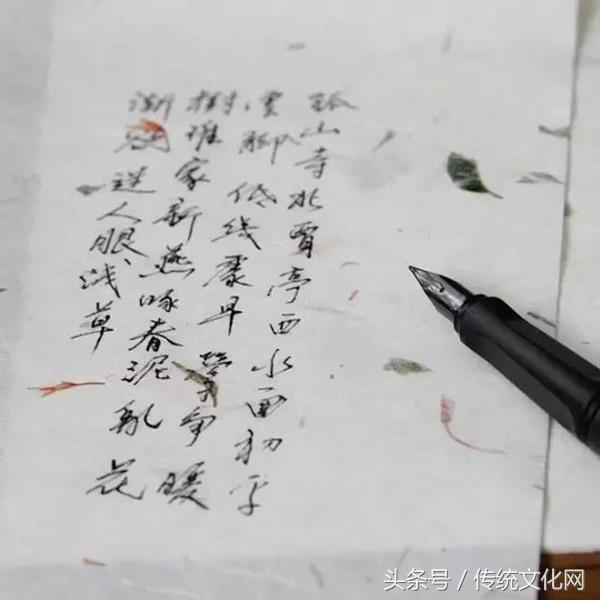 孤山寺北賈亭西水面初平
雲脚低幾處早鶯争暖
樹誰家新燕啄春泥亂花
渐欲迷人眼、浅草
头条号／传统文化网